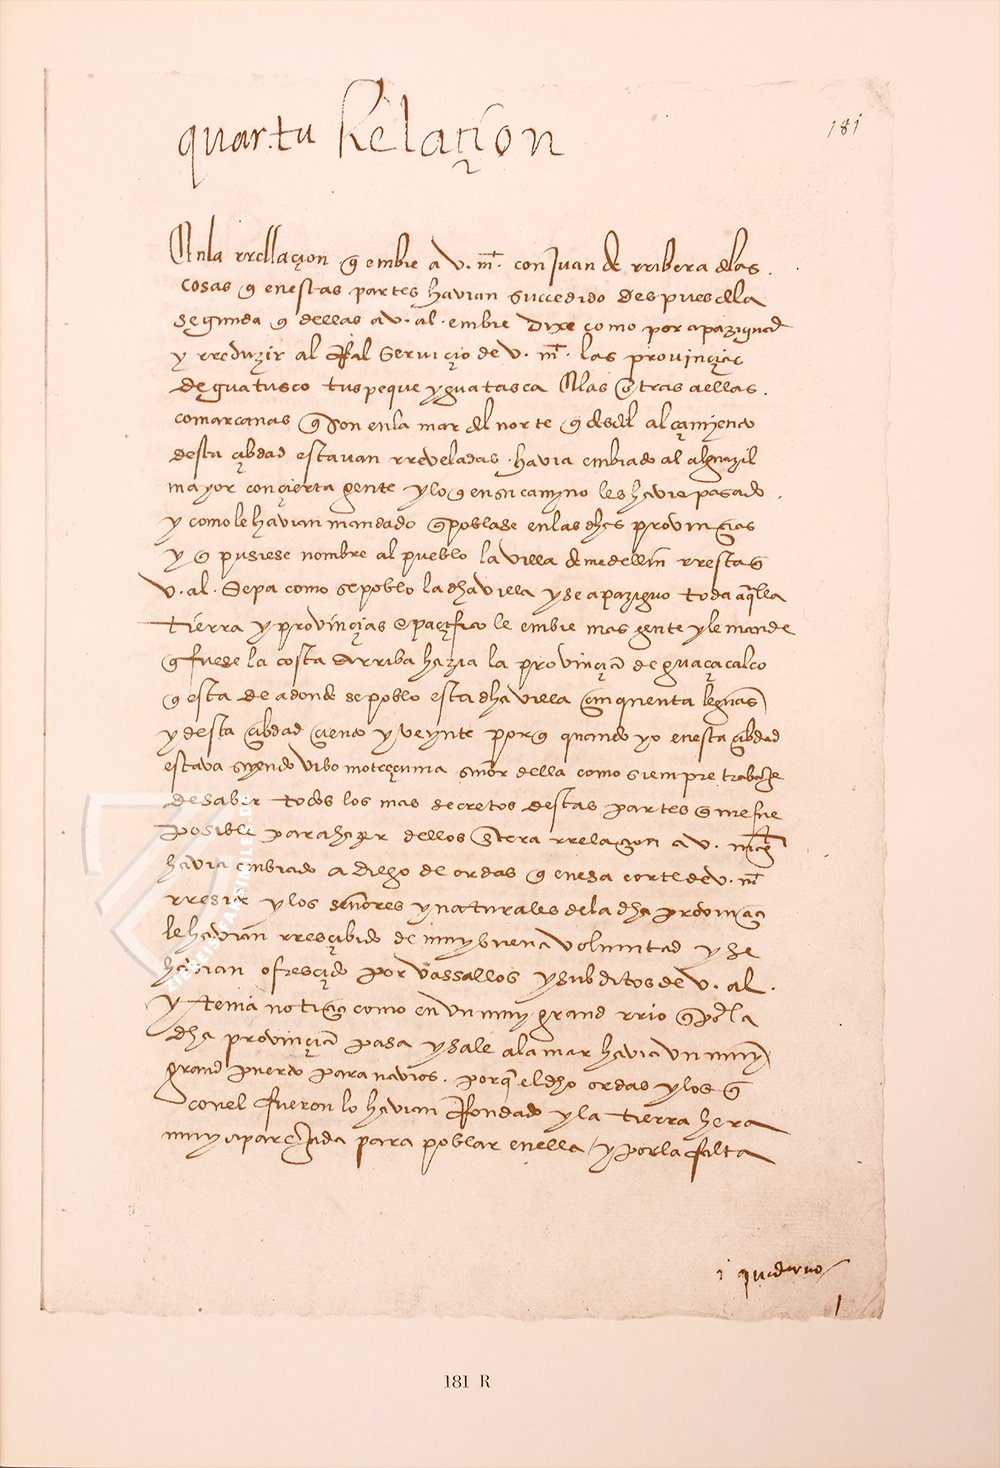 quarta Relaçion
181
Enla rrellaçion q embie a v. mt. con Juan de rribera delas
cosas q enestas partes havian succedido despues dela
segunda q dellas a v. al. embie dixe como por apaziguar
y rreduzir al Real serviçio de v. mt. las provinçias
de guatusco tuspeque y guatasca y las otras a ellas
comarcanas q son enla mar del norte q desdel alçamyento
desta çibdad estavan rreveladas havia embiado al alguazil
mayor con çierta gente y lo q en su camyno les havie pasado
y como le havian mandado q poblase enlas dhas provinçias
y q pusiese nombre al pueblo la villa de medellin rresta q
v. al. sepa como se poblo la dha villa y se apaziguo toda aqlla
tierra y provinçias e paçifico le embie mas gente y le mande
q fuese la costa arriba hazia la provinçia de guaçacalco
q esta de adonde se poblo esta dha villa çinquenta leguas
y desta çibdad çiento y veynte porq quando yo enesta çibdad
estava syendo vibo moteçcuma señor della como siempre trabaje
de saber todos los mas secretos destas partes q me fue
posible para hazer dellos entera rrelaçion a v. mt.
havia embiado a diego de ordas q enesa corte de v. mt.
rreside y los señores y naturales de la dha provinçia
le havian rresçibido de muy buena voluntad y se
havian ofresçido por vassallos y subditos de v. al.
y tenia notiçia como en un muy grand rrio q por la
dha provinçia pasa y sale ala mar havia un muy
grand puerto para navios porq el dho ordas y los q
con el fueron lo havian Rondado y la tierra hera
muy aparejada para poblar enella / y por la falta
1 quaderno
1
181 R
ZIEREIS FAKSIMILES